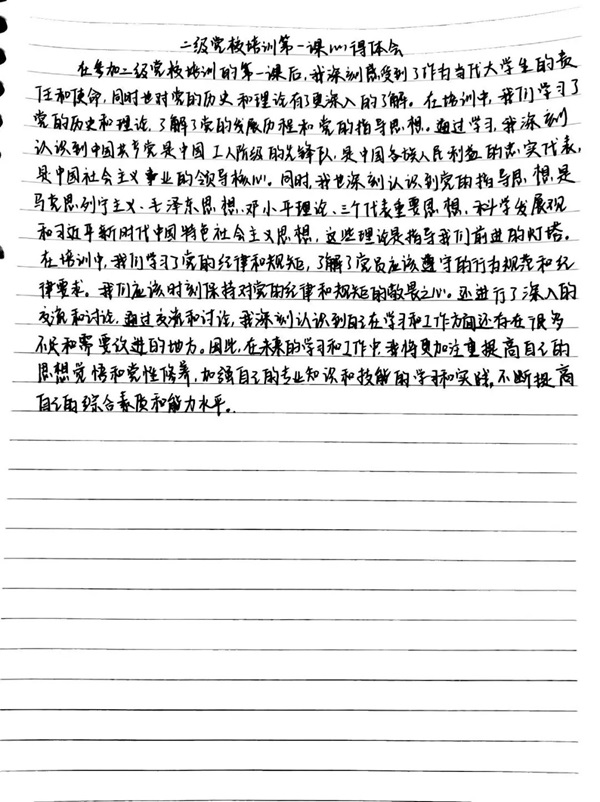 二级党校培训第一课心得体会
在参加二级党校培训的第一课后,我深刻感受到了作为当代大学生的责
任和使命,同时也对党的历史和理论有了更深入的了解。在培训中,我们学习了
党的历史和理论,了解了党的发展历程和党的指导思想。通过学习,我深刻
认识到中国共产党是中国工人阶级的先锋队,是中国各族人民利益的忠实代表,
是中国社会主义事业的领导核心。同时,我也深刻认识到党的指导思想,是
马克思列宁主义、毛泽东思想、邓小平理论、三个代表重要思想,科学发展观
和习近平新时代中国特色社会主义思想,这些理论是指导我们前进的灯塔。
在培训中,我们学习了党的纪律和规矩,了解了党员应该遵守的行为规范和纪
律要求。我们应该时刻保持对党的纪律和规矩的敬畏之心。还进行了深入的
交流和讨论,通过交流和讨论,我深刻认识到自己在学习和工作方面还存在很多
不足和需要改进的地方。因此,在未来的学习和工作中,我将更加注重提高自己的
思想觉悟和党性修养,加强自己的专业知识和技能的学习和实践,不断提高
自己的综合素质和能力水平。